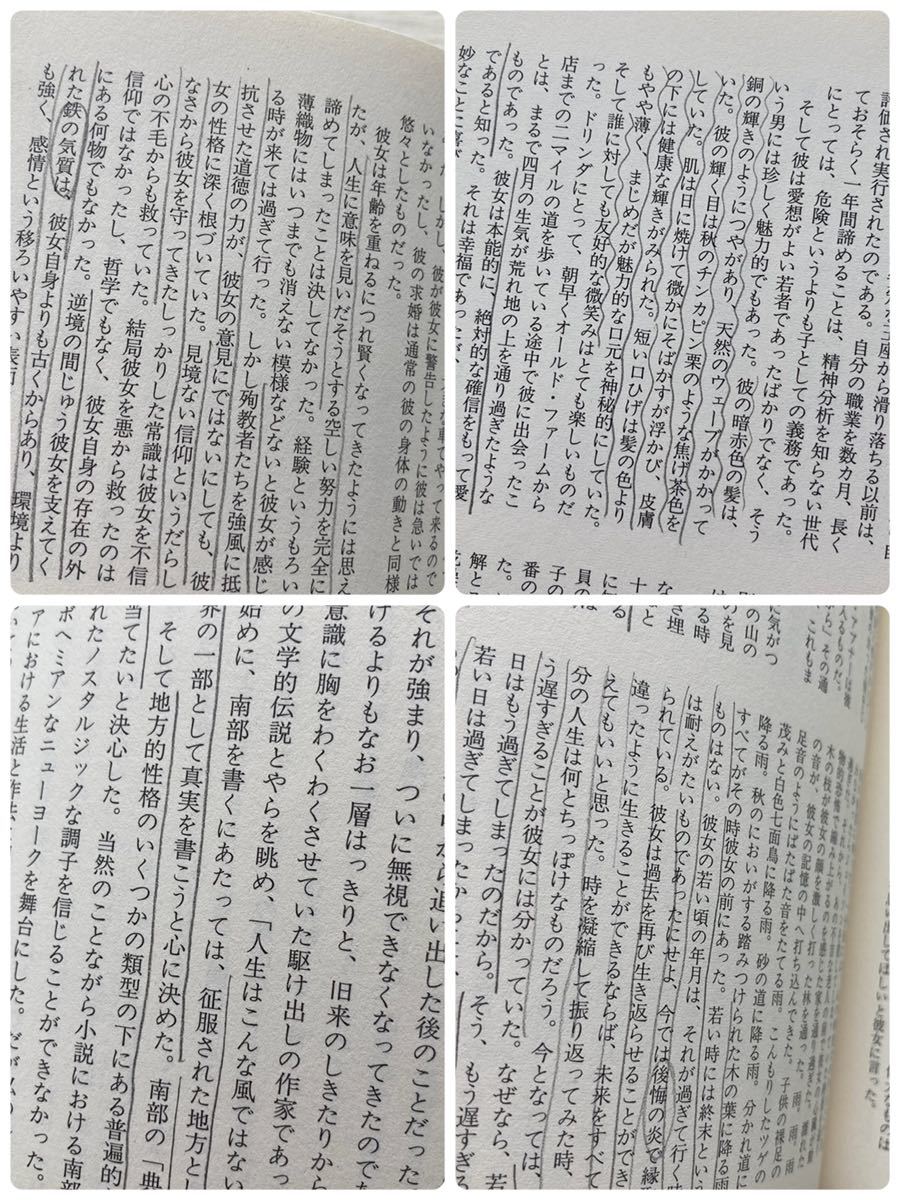 いなかったし、彼の求婚は通常の彼の身体の動きと同様
悠々としたものだった。
彼女は年齢を重ねるにつれ賢くなってきたようには思え
たが、人生に意味を見いだそうとする空しい努力を完全に
諦めてしまったことは決してなかった。経験というもろい
薄織物にはいつまでも消えない模様などないと彼女が感じ
る時が来ては過ぎて行った。しかし殉教者たちを強風に抵
抗させた道徳の力が、彼女の意見にではないにしても、彼
女の性格に深く根づいていた。見境ない信仰というだらし
なさから彼女を守ってきたしっかりした常識は彼女を不信
心の不毛からも救っていた。結局彼女を悪から救ったのは
信仰ではなかったし、哲学でもなく、彼女自身の存在の外
にある何物でもなかった。逆境の間じゅう彼女を支えてく
れた鉄の気質は、彼女自身よりも古くからあり、環境より
も強く、感情という移ろいやすい
座から滑り落ちる以前は、
評価され実行されたのである。自分の職業を数カ月、長く
ておそらく一年間諦めることは、精神分析を知らない世代
にとっては、危険というよりも子としての義務であった。
そして彼は愛想がよい若者であったばかりでなく、そう
いう男には珍しく魅力的でもあった。彼の暗赤色の髪は、
銅の輝きのようにつやがあり、天然のウェーブがかかって
いた。彼の輝く目は秋のチンカピン栗のような焦げ茶色を
していた。肌は日に焼けて微かにそばかすが浮かび、皮膚
の下には健康な輝きがみられた。短い口ひげは髪の色より
もやや薄く、まじめだが魅力的な口元を神秘的にしていた。
そして誰に対しても友好的な微笑みはとても楽しいものだ
った。ドリンダにとって、朝早くオールド・ファームから
店までの二マイルの道を歩いている途中で彼に出会ったこ
とは、まるで四月の生気が荒れ地の上を通り過ぎたような
ものであった。彼女は本能的に、絶対的な確信をもって愛
であると知った。それは幸福であった
から追い出した後のことだった
それが強まり、ついに無視できなくなってきたので
けるよりもなお一層はっきりと、旧来のしきたりか
意識に胸をわくわくさせていた駆け出しの作家であっ
の文学的伝説とやらを眺め、「人生はこんな風ではない
始めに、南部を書くにあたっては、征服された地方とし
界の一部として真実を書こうと心に決めた。南部の「典
そして地方的性格のいくつかの類型の下にある普遍的
当てたいと決心した。当然のことながら小説における南部
れたノスタルジックな調子を信じることができなかった。
ボヘミアンなニューヨークを舞台にした。だが
アにおける生活と作法
てほしいと彼女に言った。
の音が、彼女の記憶の中へ打ち込んできた。子供の裸足の
足音のようにばたばた音をたてる雨。こんもりしたツゲの
茂みと白色七面鳥に降る雨。砂の道に降る雨。分かれ道に
降る雨。秋のにおいがする踏みつけられた木の葉に降る雨。
すべてがその時彼女の前にあった。若い時には終末という
ものはない。彼女の若い頃の年月は、それが過ぎて行く時
は耐えがたいものであったにせよ、今では後悔の炎で縁
られている。彼女は過去を再び生き返らせることができ
違ったように生きることができるならば、未来をすべて
えてもいいと思った。時を凝縮して振り返ってみた時、
分の人生は何とちっぽけなものだろう。今となっては、
う遅すぎることが彼女には分かっていた。なぜなら、若
日はもう過ぎてしまったのだから。そう、もう遅すぎ
若い日は過ぎてしまったか